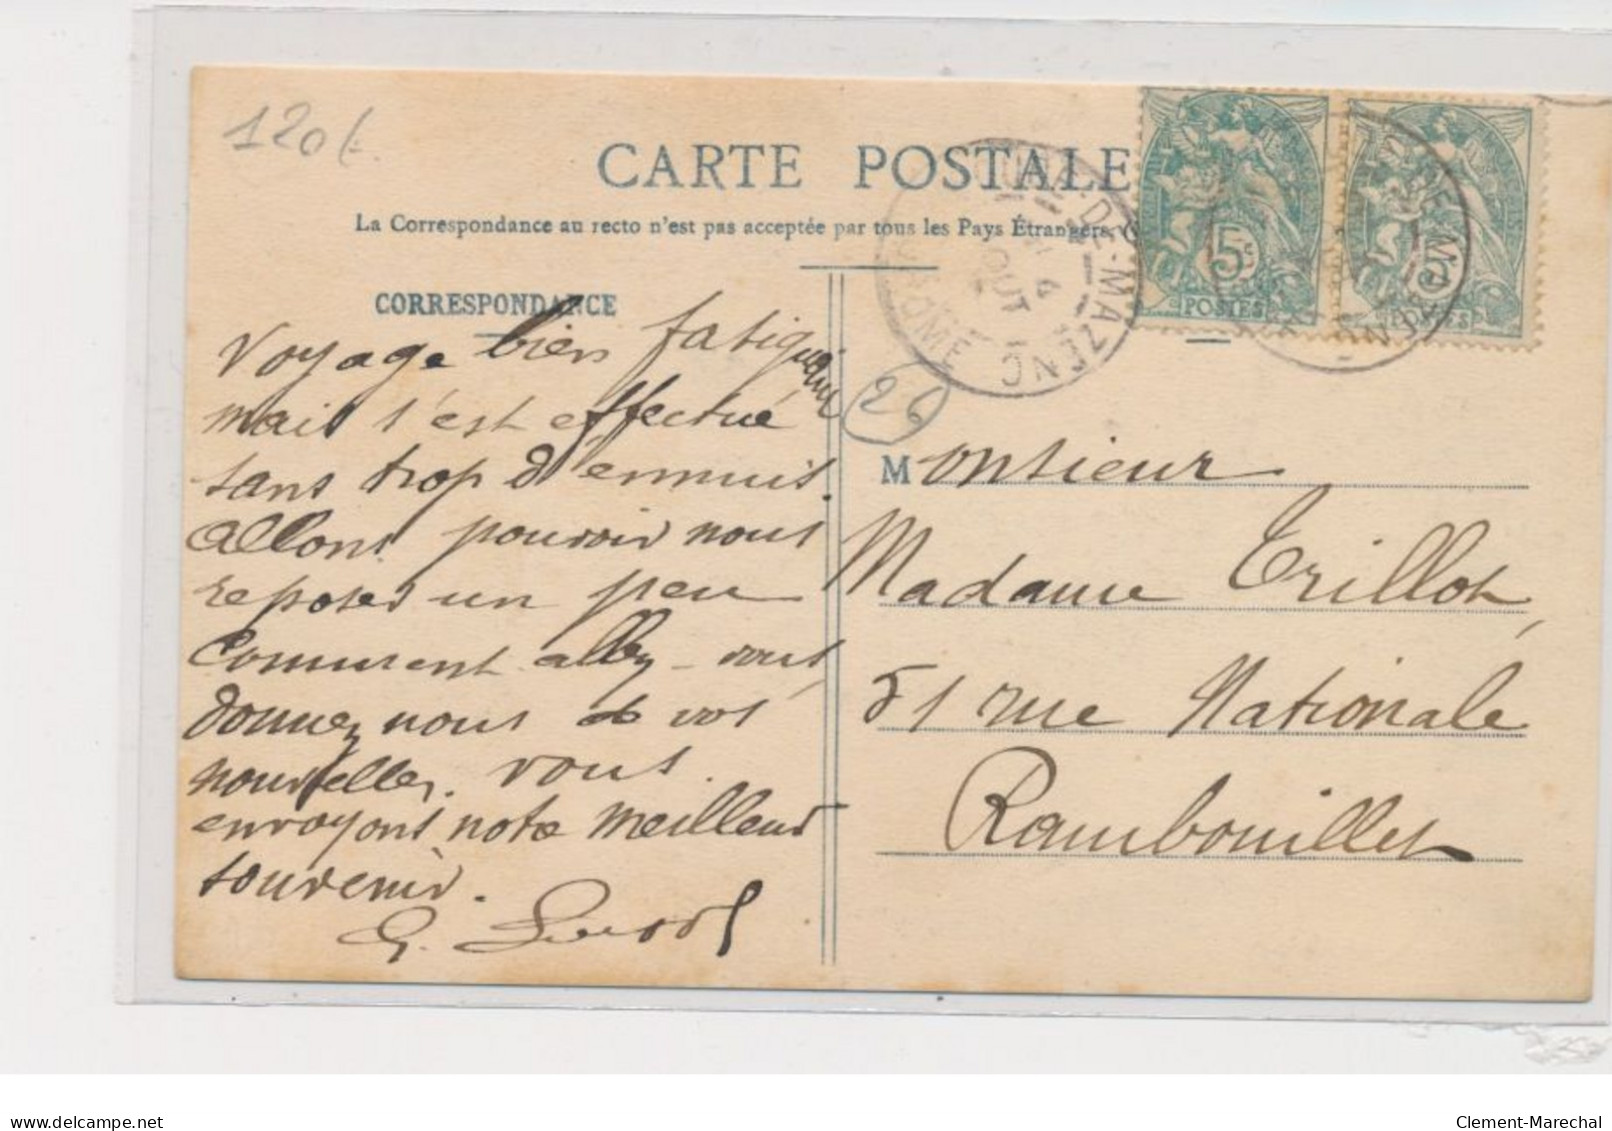 120f.
CARTE POSTALE
La Correspondance au recto n'est pas acceptée par tous les Pays Étrangers.
CORRESPONDANCE
DE-MAZENC
AOUT
DROME
5c
POSTES
POSTES
26
Voyage bien fatiguant
mais s'est effectué
sans trop d'ennuis.
allons pouvoir nous
reposer un peu
Comment allez-vous,
donnez nous de vos
nouvelles. vous
envoyons note meilleur
souvenir.
G.
Monsieur
Madame Trillot,
51 rue Nationale
Rambouillet
delcampe.net
Clement-Marechal